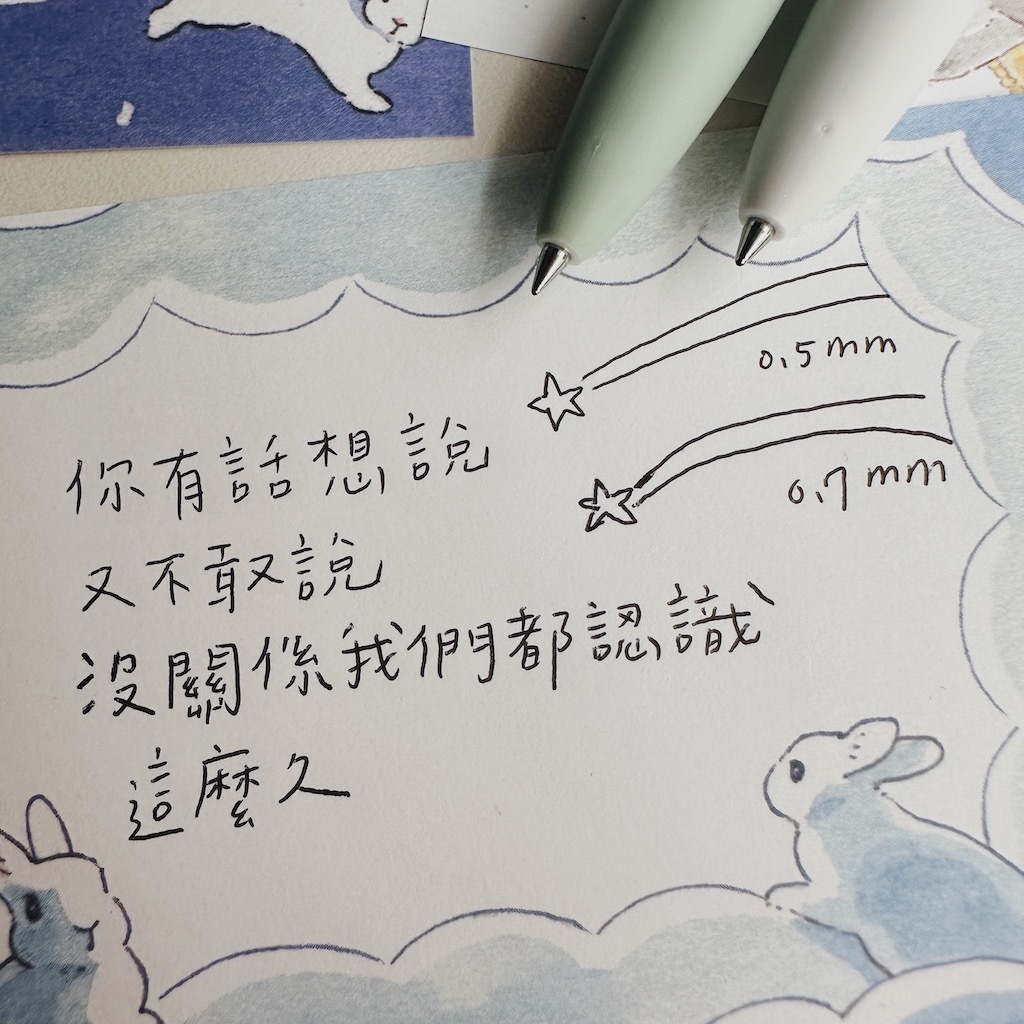 0.5mm
0.7mm
你有話想說
又不敢說
沒關係我們都認識
這麼久